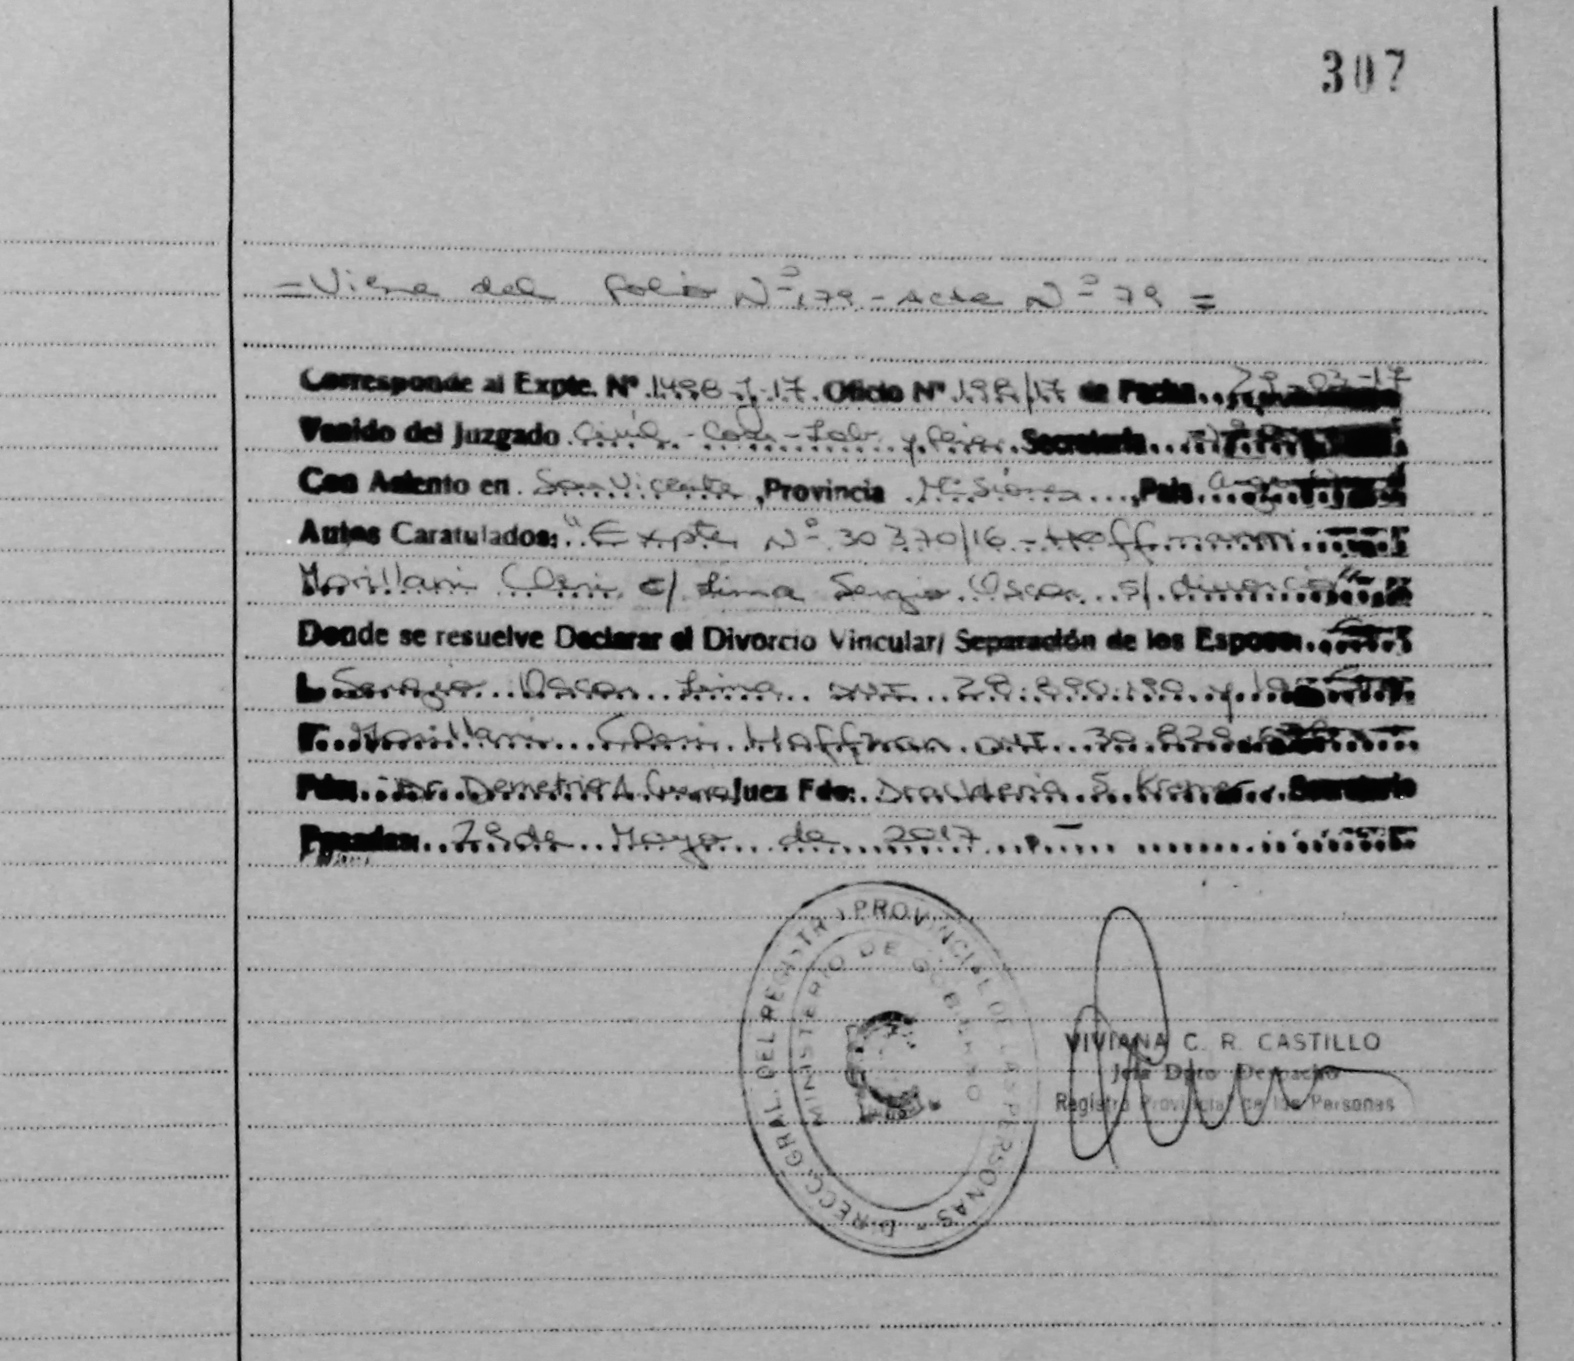 307
= Viene del folio Nº 179 - Acta Nº 79 =
Corresponde al Expte. Nº 1498-J-17. Oficio Nº 198/17 de Fecha 29-03-17
Venido del Juzgado Civil - Com - Lab. y Flia. Secretaría
Con Asiento en San Vicente, Provincia Misiones, País
Autos Caratulados: "Expte. Nº 30370/16 - Hoffmann
Marillani Cleni c/ Lima Sergio Oscar s/ divorcio"
Donde se resuelve Declarar el Divorcio Vincular/ Separación de los Esposos
Sergio Oscar Lima DNI 28.890.190 y la
Marillani Cleni Hoffman DNI 30.829.
Fdo: Dr. Demetrio A. Juez Fdo: Dra. Valeria S. Kremer Secretario
Posadas: 29 de Mayo de 2017
DIRECC. GRAL. DEL REGISTRO PROVINCIAL DE LAS PERSONAS
MINISTERIO DE GOBIERNO
VIVIANA C. R. CASTILLO
Jefe Dpto Despacho
Registro Provincial de las Personas